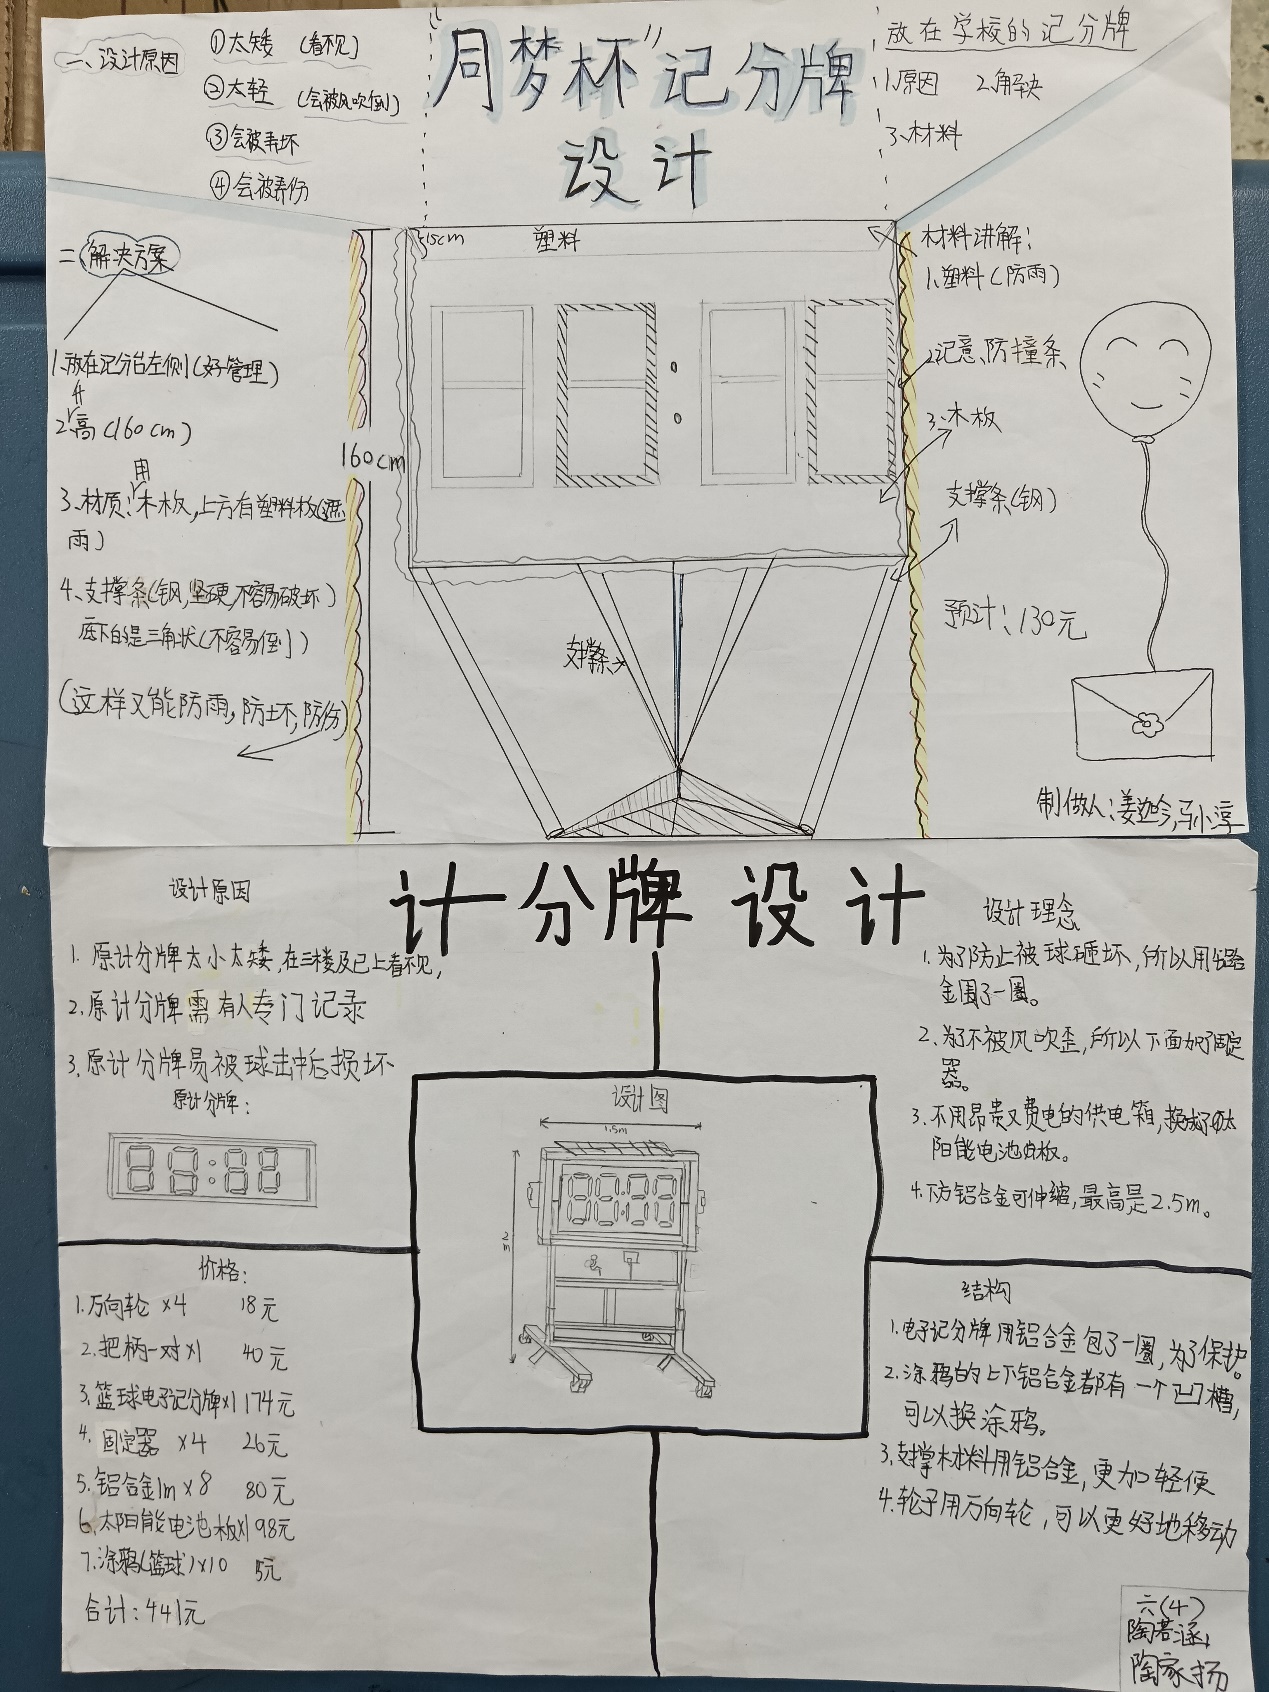 一、设计原因
①太矮 (看不见)
②太轻 (会被风吹倒)
③会被弄坏
④会被弄伤
同梦杯”记分牌
设计
放在学校的记分牌
1.原因 2.解决
3.材料
二 解决方案
1.放在记分台左侧(好管理)
2.高(160cm)
用
3.材质:木板,上方有塑料板(遮
雨)
4.支撑条(钢,坚硬,不容易破坏)
底下的是三角状(不容易倒)
(这样又能防雨,防坏,防伤)
15cm
塑料
160cm
支撑条
材料讲解:
1.塑料(防雨)
2.记意、防撞条
3.木板
支撑条(钢)
预计:130元
制做人:姜迦吟,马小淳
计分牌设计
设计原因
1. 原计分牌太小太矮,在三楼及已上看不见,
2.原计分牌需有人专门记录
3.原计分牌易被球击中后损坏
原计分牌:
88:88
设计理念
1.为了防止被球砸坏,所以用铝合
金围了一圈。
2.为了不被风吹歪,所以下面加了固定
器。
3.不用昂贵又费电的供电箱,换成了太
阳能电池板。
4.下方铝合金可伸缩,最高是2.5m。
设计图
1.5m
2m
88:88
价格:
1.万向轮 ×4 18元
2.把柄一对×1 40元
3.篮球电子记分牌×1 174元
4.固定器 ×4 26元
5.铝合金1m×8 80元
6.太阳能电池板×1 98元
7.涂鸦(篮球)×10 5元
合计:441元
结构
1.电子记分牌用铝合金包了一圈,为了保护。
2.涂鸦的上下铝合金都有一个凹槽,
可以换涂鸦。
3.支撑材料用铝合金,更加轻便
4.轮子用万向轮,可以更好地移动
六(4)
陶若涵
陶家扬